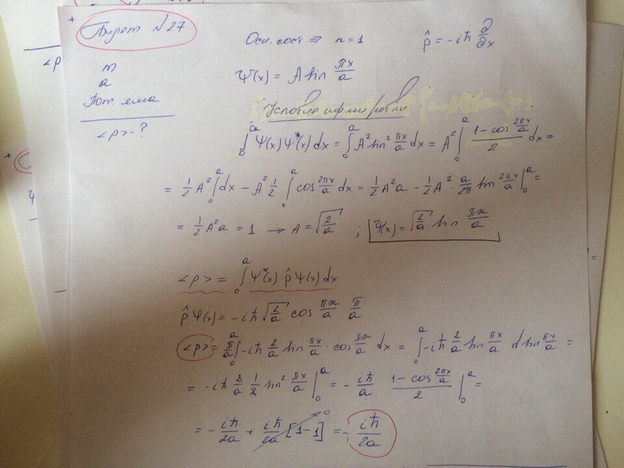 Билет №27
Осн. сост ⇒ n=1
p̂ = -iħ ∂/∂x
m
a
Пот. яма
<p> - ?
Ψ(x) = A sin πx/a
Условие нормировки
∫₀ᵃ Ψ(x)Ψ*(x)dx = ∫₀ᵃ A² sin² πx/a dx = A² ∫₀ᵃ (1-cos 2πx/a)/2 dx =
= 1/2 A² ∫₀ᵃ dx - A² 1/2 ∫₀ᵃ cos 2πx/a dx = 1/2 A²a - 1/2 A² · a/2π sin 2πx/a |₀ᵃ =
= 1/2 A²a = 1 → A = √(2/a) ; Ψ(x) = √(2/a) sin πx/a
<p> = ∫₀ᵃ Ψ*(x) p̂ Ψ(x) dx
p̂Ψ(x) = -iħ √(2/a) cos πx/a π/a
<p> = π/a ∫₀ᵃ -iħ 2/a sin πx/a · cos πx/a dx = ∫₀ᵃ -iħ 2/a sin πx/a d sin πx/a =
= -iħ 2/a 1/2 sin² πx/a |₀ᵃ = - iħ/a (1-cos 2πx/a)/2 |₀ᵃ =
= - iħ/2a + iħ/2a [1-1] = - iħ/2a